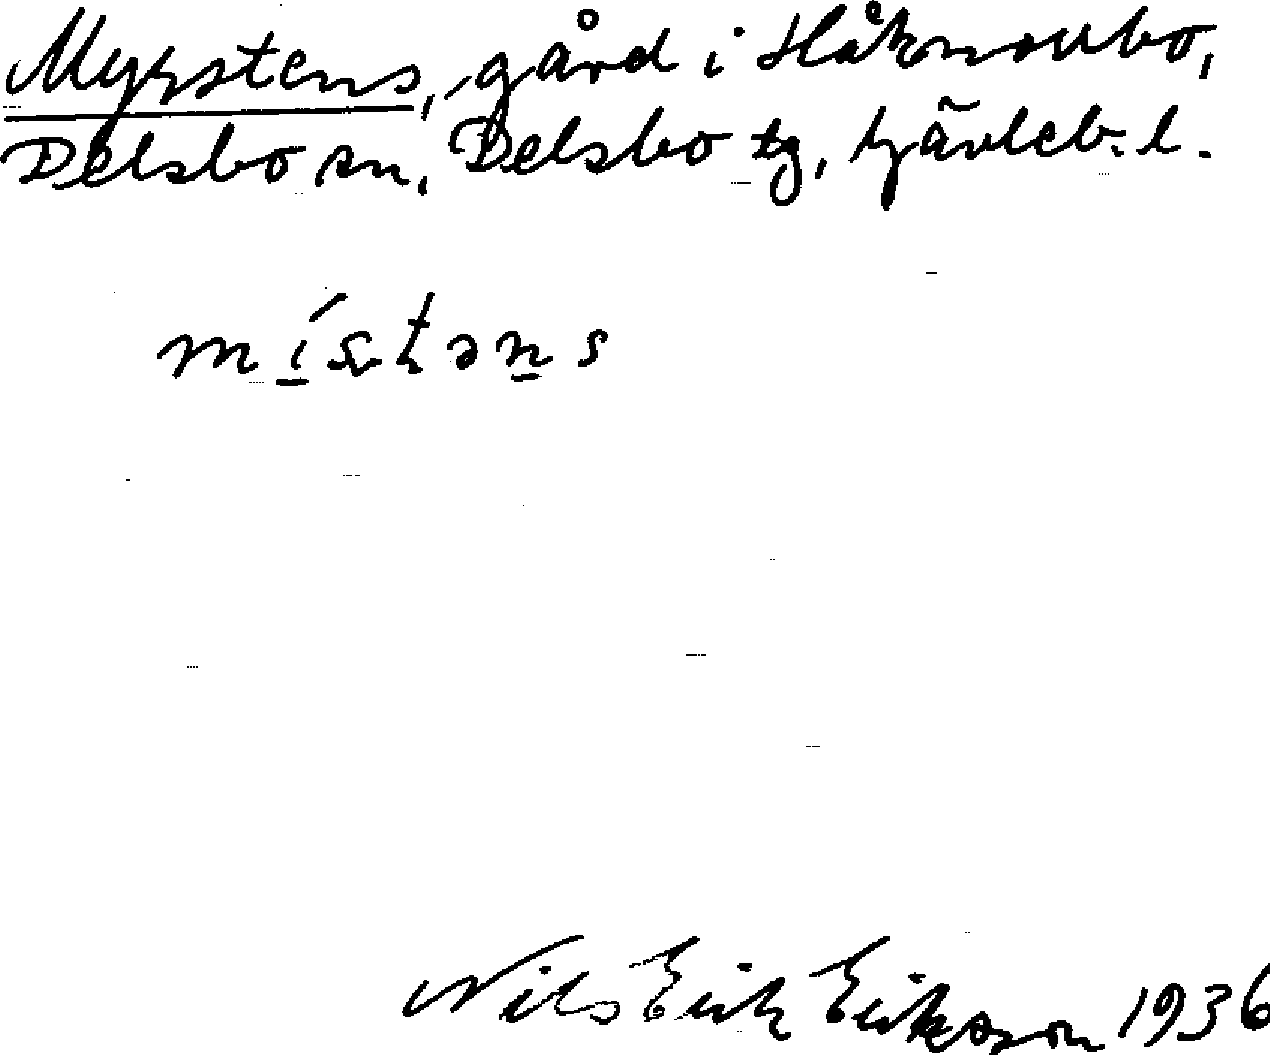 Myrstens, gård i Håknorrbo,
Delsbo sn, Delsbo tg, Gävleb. l.
místəns
Nils Erik Eriksson 1936